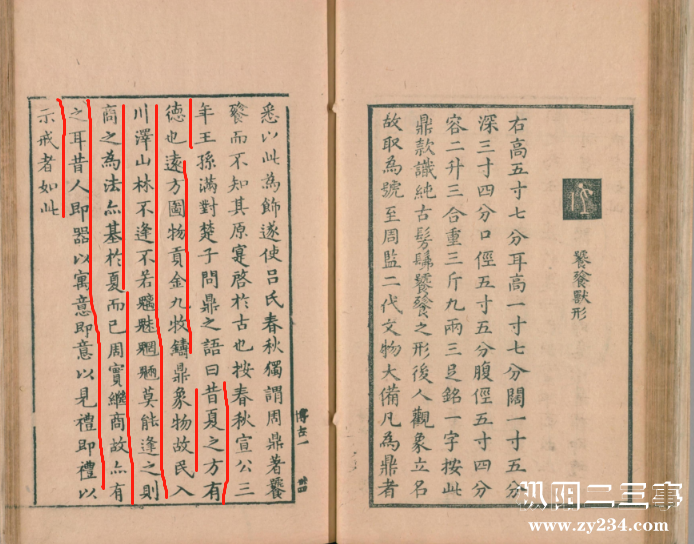 饕餮獸形
右高五寸七分耳高一寸七分闊一寸五分
深三寸四分口俓五寸五分腹俓五寸四分
容二升三合重三斤九兩三足銘一字按此
鼎款識純古髣髴饕餮之形後人觀象立名
故取為號至周監二代文物大備凡為鼎者
悉以此為飾遂使呂氏春秋獨謂周鼎著饕
餮而不知其原寔啓於古也按春秋宣公三
年王孫滿對楚子問鼎之語曰昔夏之方有
德也遠方圖物貢金九牧鑄鼎象物故民入
川澤山林不逢不若魑魅魍魎莫能逢之則
商之為法亦基於夏而已周實繼商故亦有
之耳昔人即器以寓意即意以見禮即禮以
示戒者如此
枞阳二三事
www.zy234.com